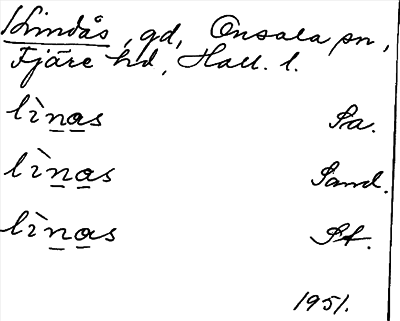 Lindås, gd, Onsala sn,
Fjäre hd, Hall. l.
lìnas Sa.
lìnas Sand.
lìnas St.
1951.